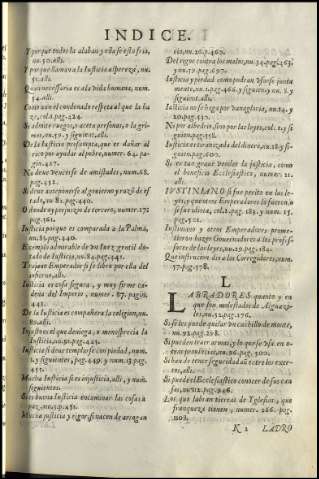 INDICE.
Y por que todos la alaban y ella se està fria,
nu. 50. alli.
Y por que llaman a la Iusticia aspereza, nu.
51. alli.
Que necessaria es a la vida humana, num.
54. alli.
Como con el condenado respeta al que la ha
ze, cd. 2. pag. 224.
Si admite ruegos, y acceta personas, o lagri
mas, nu. 59. y siguient. alli.
De la Iusticia presumpta, que es dañar al
rico por ayudar al pobre, numer. 64. pa-
gin. 437.
No deve vencerse de amistades, num. 68.
pag. 432.
Si deve anteponerse al govierno y razõ de es
tado, nu. 81. pag. 440.
O donde ay perjuyzio de tercero, numer. 172
pag. 361.
Iusticia porque es comparada a la Palma,
nu. 85. pag. 440.
Exemplo admirable de vn Iuez gentil do-
tado de Iusticia, nu. 84. pag. 441.
Trajano Emperador si se libro por ella del
infierno, alli.
Iusticia es cosa segura, y muy firme ca-
dena del Imperio, numer. 87. pagin.
442.
De la Iusticia es compañera la religion, nu.
80. alli.
Injusto es el que deniega, y menosprecia la
Iusticia, nu. 91. pag. 423.
Iusticia si deve templarse con piedad, num.
1. y siguientes, pag. 449. y num. 9. pag.
451.
Mucha Iusticia si es injusticia, alli, y num.
siguientes.
Si es buena encaminar las cosas a
paz, nu. 13. alli.
Mucha justicia y rigor, si nacen de arrogan
cia, nu. 20. p. 462.
Del rigor contra los malos, nu. 34. pag. 463.
y nu. 39. pag. 697.
Iusticia y piedad como podran vsarse junta
mente, nu. 1. pag. 466. y siguien. y nu. 8. y
siguient. alli.
Iusticia no se haga por vanagloria, nu. 14. y
20. pag. 457.
No por alvedrio, sino por las leyes, cd. 1. y si
guient. pag. 118.
Iusticia es tiranizada del dinero, nu. 28. y si-
guien. pag. 609.
Si es tan grave vender la justicia, como
el beneficio Ecclesiastico, numer. 21.
alli.
IVSTINIANO si fue perito en las le-
yes, y quantos Emperadores lo fueron, o
no las sabian, cd. 2. pag. 183. y num. 25.
pag. 512.
Iustiniano y otros Emperadores prome-
tieron hazer Consistoriales a los profes-
sores de las leyes, nu. 29. pag. 184.
Que instruccion dio a los Corregidores, num.
57. pag. 178.
L
LABRADORES quanto y en
que son molestados de Alguazi-
les, nu. 32. pag. 176.
Si se les puede quitar vn cuchillo de monte,
nu. 93. pag. 398.
Si pueden traer armas, y lo que se vsa en e-
sto en provincias, nu. 96. pag. 500.
Si han de tener seguridad aũ entre los exer-
citos, alli.
Si puede el Ecclesiastico conocer de sus cau
sas, nu. 212. pag. 946.
Los que labran tierras de Yglesias, que
franqueza tienen, numer. 266. pag.
1003.
K 2 LADRO